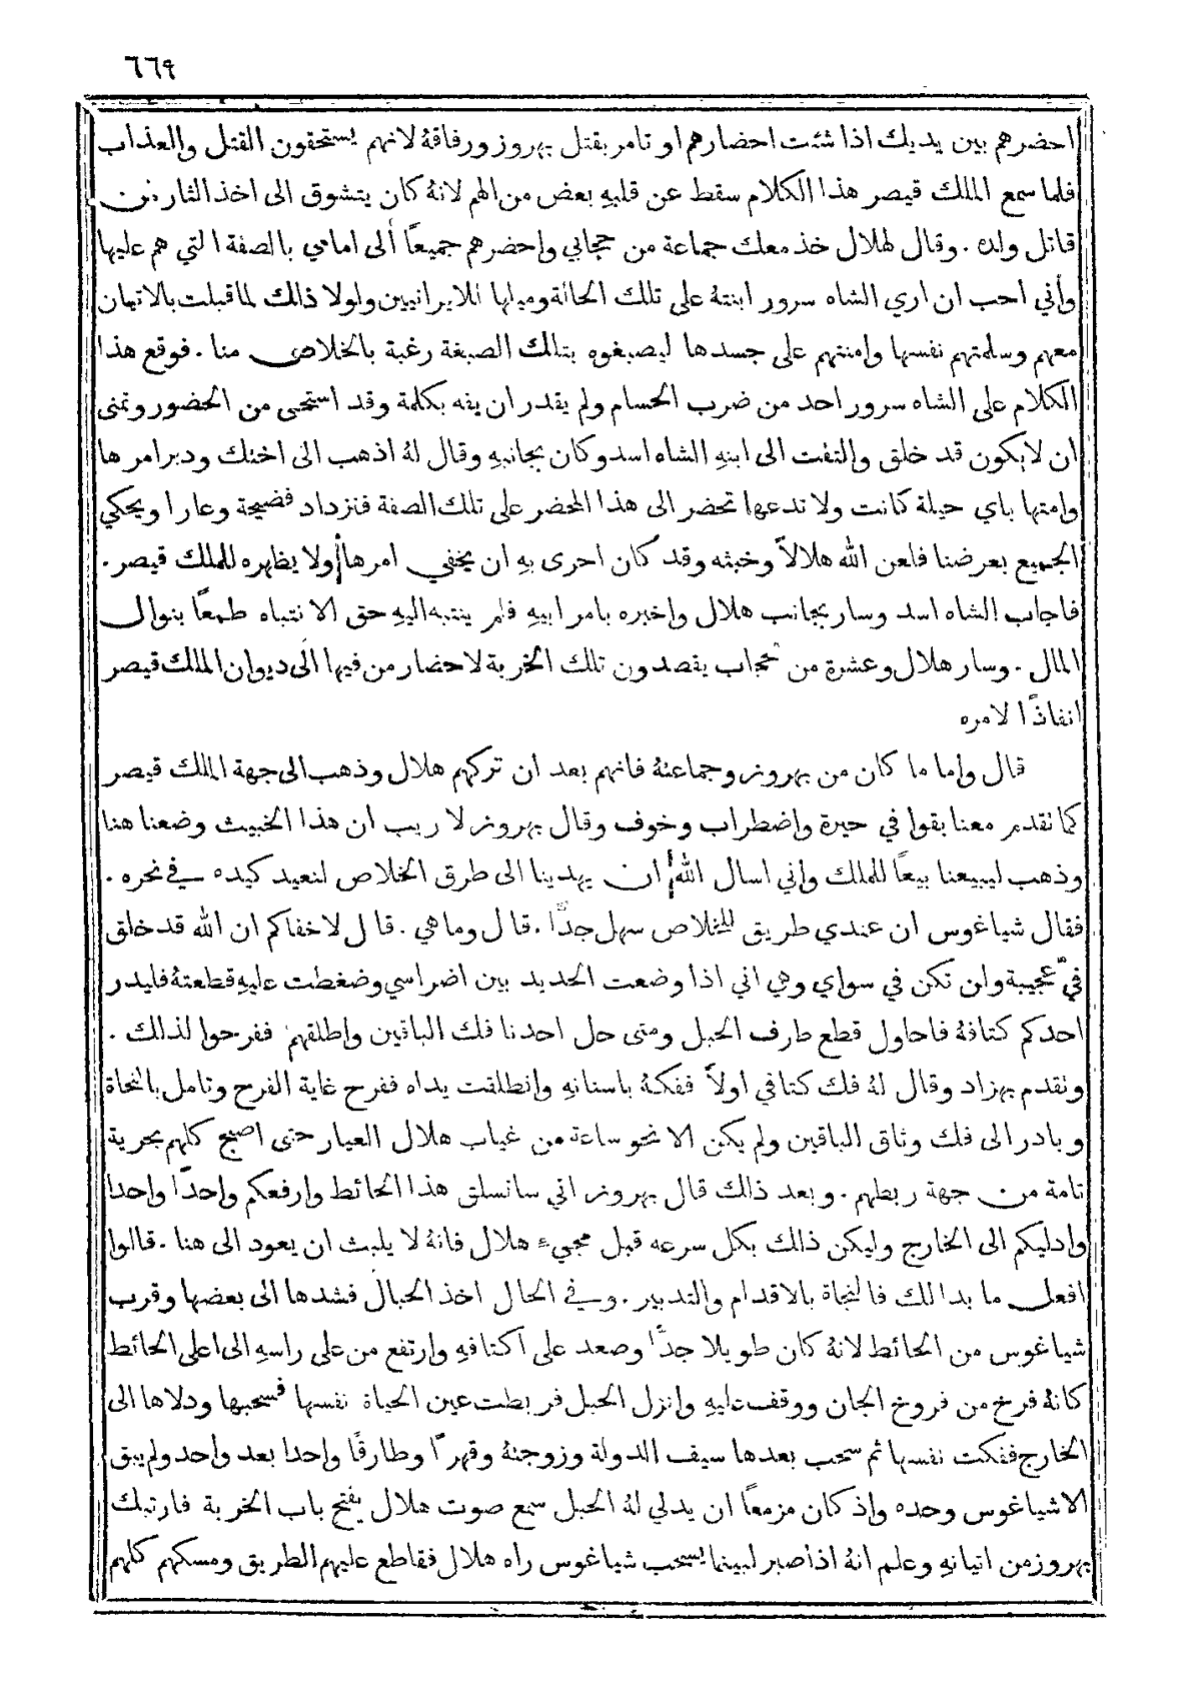 ٦٦٩
احضرهم بين يديك اذا شئت احضارهم او تامر بقتل بهروز ورفاقهُ لانهم يستحقون القتل والعذاب
فلما سمع الملك قيصر هذا الكلام سقط عن قلبهِ بعض من الهم لانهُ كان يتشوق الى اخذ الثار من
قاتل ولده . وقال لهلال خذ معك جماعة من حجابي واحضرهم جميعًا ألى امامي بالصفة التي هم عليها
وأني احب ان اري الشاه سرور ابنتهُ على تلك الحالة وميلها للايرانيين ولولا ذلك لما قبلت بالاتيان
معهم وسلمتهم نفسها وامنتهم على جسدها ليصبغوه بتلك الصبغة رغبة بالخلاص منا . فوقع هذا
الكلام على الشاه سرور احد من ضرب الحسام ولم يقدر ان يفه بكلمة وقد استحى من الحضور وتمنى
ان لا يكون قد خلق والتفت الى ابنهِ الشاه اسد وكان بجانبهِ وقال لهُ اذهب الى اختك ودبر امرها
وامتها باي حيلة كانت ولا تدعها تحضر الى هذا المحضر على تلك الصفة فتزداد فضيحة وعارا ويحكي
الجميع بعرضنا فلعن الله هلالاً وخبثه وقد كان احرى بهِ ان يخفي امرها أولا يظهره للملك قيصر .
فاجاب الشاه اسد وسار بجانب هلال واخبره بامر ابيهِ فلم ينتبه اليهِ حق الانتباه طمعًا بنوال
المال . وسار هلال وعشرة من حجاب يقصدون تلك الخربة لاحضار من فيها الى ديوان الملك قيصر
انفاذًا لامره
قال واما ما كان من بهروز وجماعتهُ فانهم بعد ان تركهم هلال وذهب الى جهة الملك قيصر
كما تقدم معنا بقوا في حيرة واضطراب وخوف وقال بهروز لا ريب ان هذا الخبيث وضعنا هنا
وذهب ليبيعنا بيعًا للملك واني اسال الله أن يهدينا الى طرق الخلاص لنعيد كيده في نحره .
فقال شياغوس ان عندي طريق للخلاص سهل جدًّا . قال وما هي . قال لا خفاكم ان الله قد خلق
فيّ عجيبة ولن تكن في سواي وهي اني اذا وضعت الحديد بين اضراسي وضغطت عليهِ قطعتهُ فليدر
احدكم كتافهُ فاحاول قطع طارف الحبل ومتى حل احدنا فك الباقين واطلقهم ففرحوا لذلك .
وتقدم بهزاد وقال لهُ فك كتافي اولاً ففكهُ باسنانهِ وانطلقت يداه ففرح غاية الفرح وتامل بالنجاة
وبادر الى فك وثاق الباقين ولم يكن الا نحو ساعة من غياب هلال العيار حتى اصبح كلهم بحرية
تامة من جهة ربطهم . وبعد ذلك قال بهروز اني ساتسلق هذا الحائط وارفعكم واحدًا واحدا
وادليكم الى الخارج وليكن ذلك بكل سرعه قبل مجيء هلال فانهُ لا يلبث ان يعود الى هنا . قالوا
افعل ما بدا لك فالنجاة بالاقدام والتدبير . وفي الحال اخذ الحبال فشدها الى بعضها وقرب
شياغوس من الحائط لانهُ كان طويلا جدًّا وصعد على اكتافهِ وارتفع من على راسهِ الى اعلى الحائط
كانهُ فرخ من فروخ الجان ووقف عليهِ وانزل الحبل فربطت عين الحياة نفسها فسحبها ودلاها الى
الخارج ففكت نفسها ثم سحب بعدها سيف الدولة وزوجتهُ وقهرًا وطارقًا واحدا بعد واحد ولم يبق
الا شياغوس وحده واذ كان مزمعًا ان يدلي لهُ الحبل سمع صوت هلال يفتح باب الخربة فارتبك
بهروز من اتيانهِ وعلم انهُ اذا صبر لبينما يسحب شياغوس راه هلال فقاطع عليهم الطريق ومسكهم كلهم